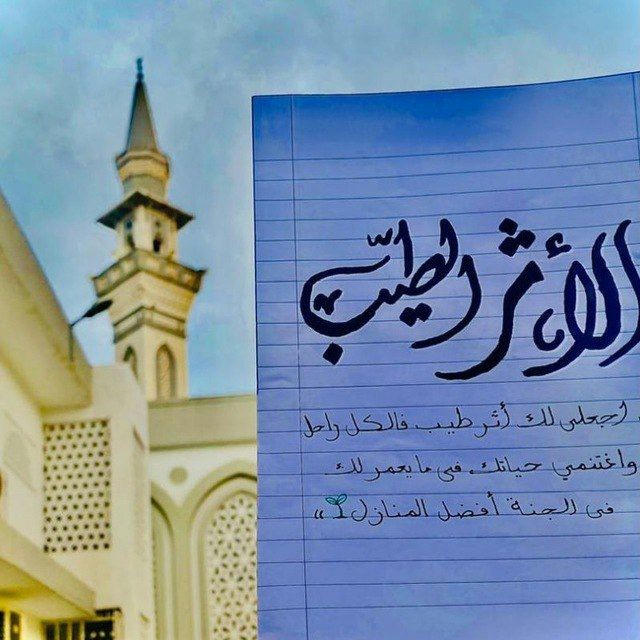 الأثر الطيّب
اجعلي لك أثر طيب فالكل راحل
واغتنمي حياتك في ما يعمر لك
في الجنة أفضل المنازل »